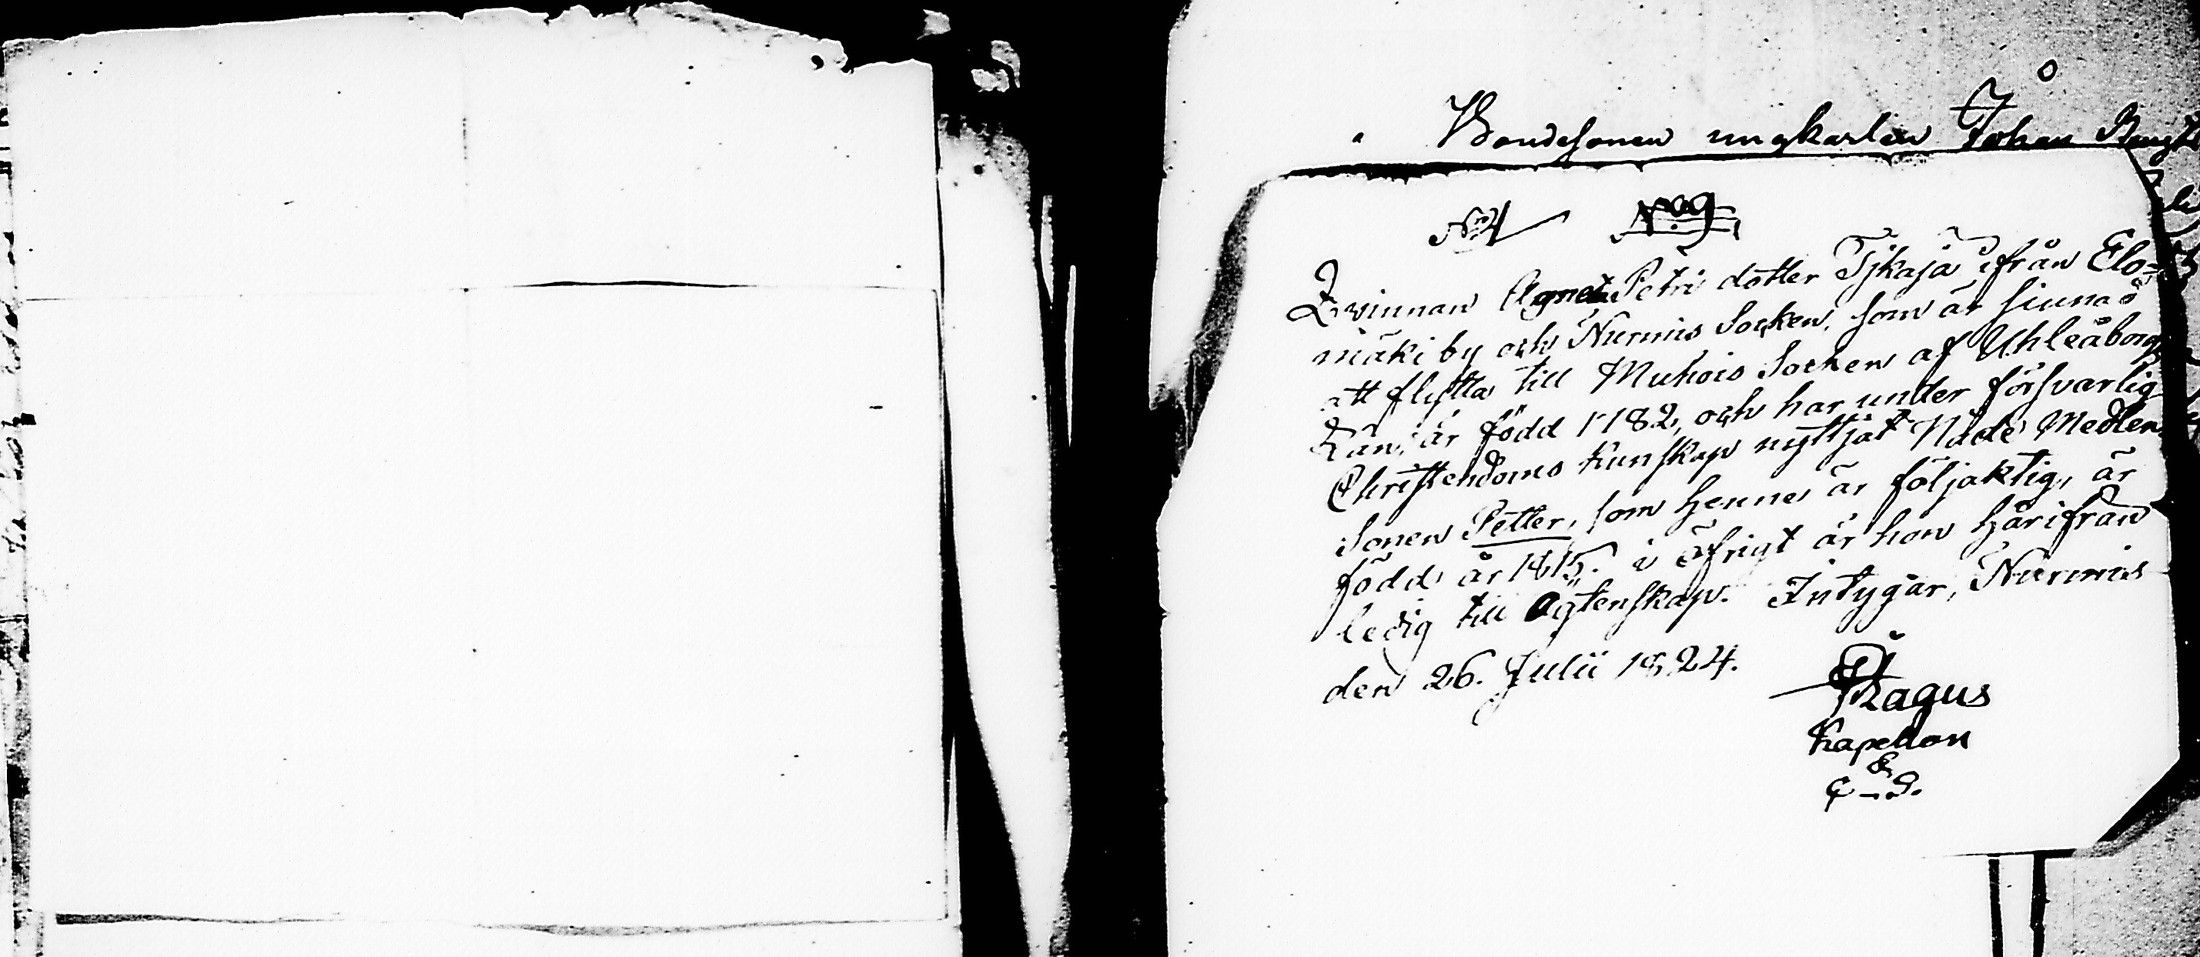 Bondesonen ungkarlen Johan Bengts
N:o 4 N:o 9
Qvinnan Agneta Petri dotter Tjkaja ifrån Elo=
mäki by och Nurmis Socken, som är sinnad
att flytta till Muhois Socken af Uhleåborgs
Län, är född 1782, och har under försvarlig
Christendoms kunskap nyttjat Nåde Medlen.
Sonen Petter, som henne är följaktig, är
född år 1815. i öfrigt är hon härifrån
ledig till Ägtenskap. Intygar, Nurmis
den 26. Julii 1824.
Ragus
Kapellan